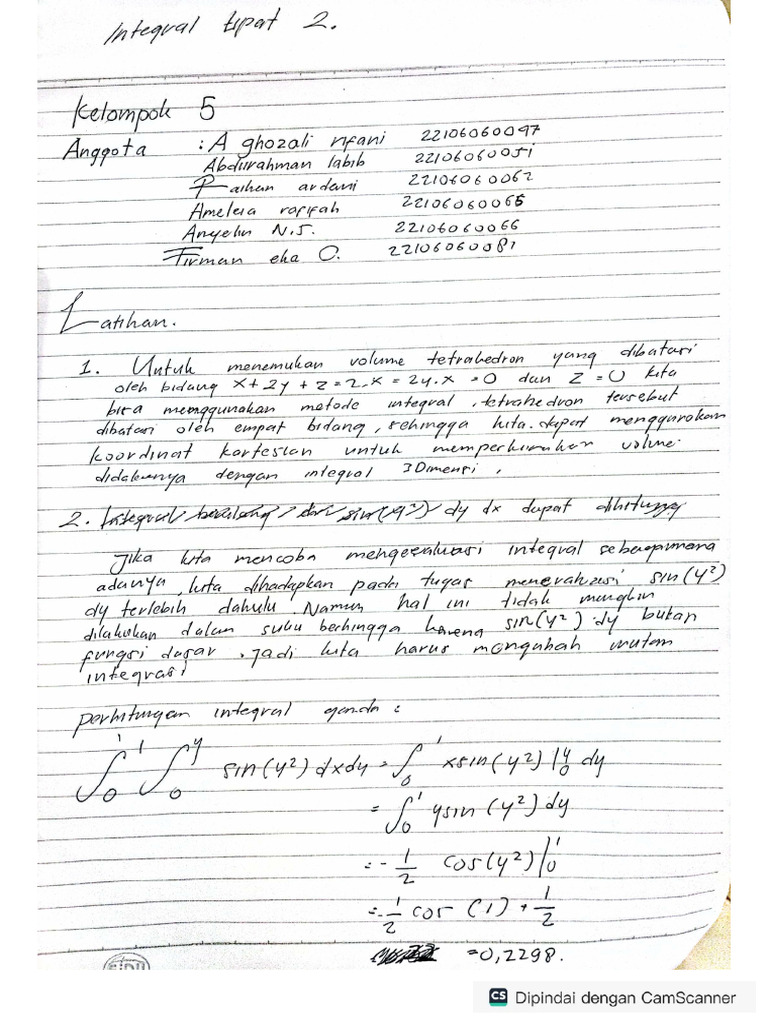 Integral lipat 2.
Kelompok 5
Anggota : A ghozali rifani 22106060047
Abdurahman labib 22106060051
Raihan ardani 22106060062
Amelera rafifah 22106060065
Anyelin N.S. 22106060066
Firman eka O. 22106060081
Latihan.
1. Untuk menemukan volume tetrahedron yang dibatasi
oleh bidang x + 2y + z = 2, x = 2y, x = 0 dan z = 0 kita
bisa menggunakan metode integral, tetrahedron tersebut
dibatasi oleh empat bidang, sehingga kita dapat menggunakan
koordinat kartesian untuk memperkirakan volume
didalamnya dengan integral 3 Dimensi,
2. Integral sin(y²) dy dx dapat dihitung
Jika kita mencoba mengevaluasi integral sebagaimana
adanya, kita dihadapkan pada tugas sin(y²)
dy terlebih dahulu. Namun hal ini tidak mungkin
dilakukan dalam suku berhingga karena sin(y²) dy bukan
fungsi dasar. Jadi kita harus mengubah urutan
integrasi
perhitungan integral ganda :
∫₀¹ ∫₀ʸ sin(y²) dx dy = ∫₀¹ x sin(y²) |₀ʸ dy
= ∫₀¹ y sin(y²) dy
= - 1/2 cos(y²) |₀¹
= - 1/2 cos(1) + 1/2
= 0,2298.
SIDU
CS Dipindai dengan CamScanner